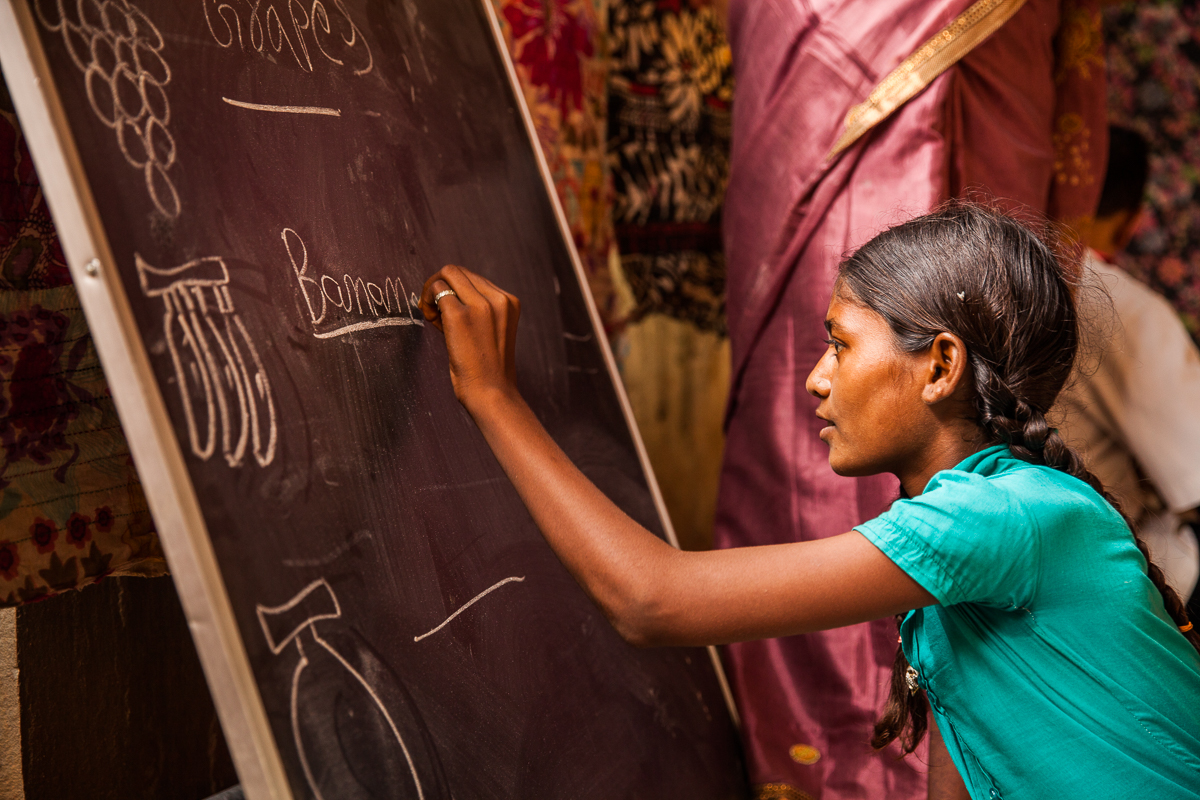 Grapes
Banan